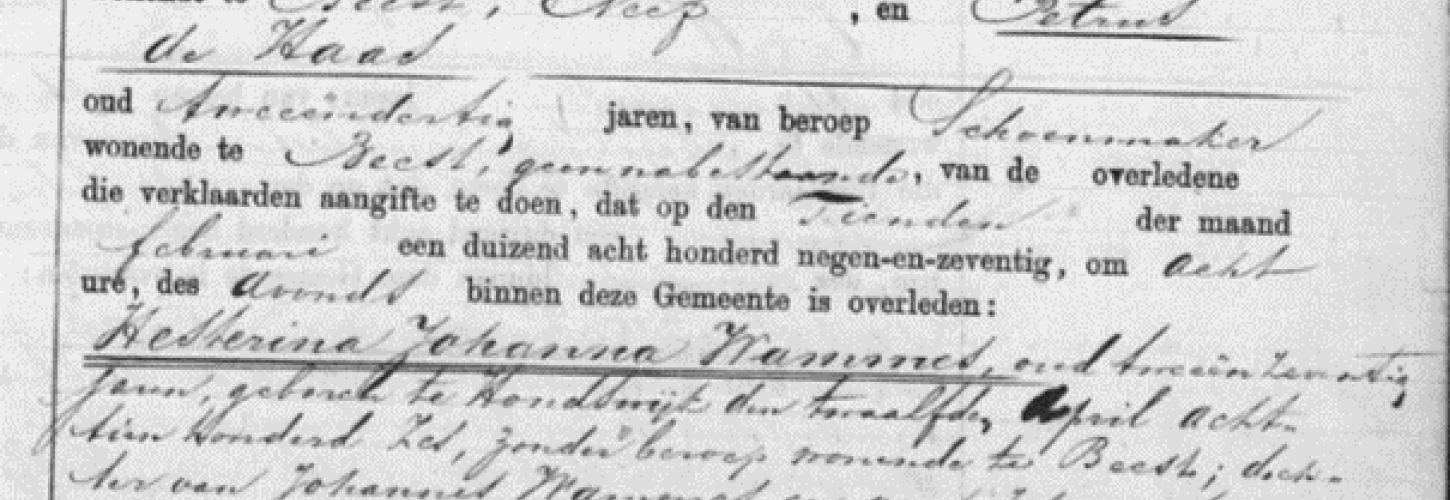 wonende te Beest, Neef, en Petrus
de Haas
oud tweeendertig jaren, van beroep Schoenmaker
wonende te Beest, geen nabestaande, van de overledene
die verklaarden aangifte te doen, dat op den Tienden der maand
februari een duizend acht honderd negen-en-zeventig, om acht
ure, des avonds binnen deze Gemeente is overleden:
Hesterina Johanna Wammes, oud tweeenzeventig
jaren, geboren te Hondswijk den twaalfden April acht-
tien honderd zes, zonder beroep wonende te Beest; doch-
ter van Johannes Wammes